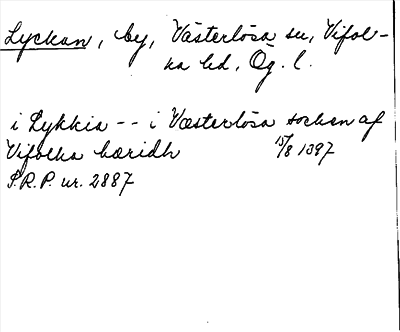 Lyckan, by, Västerlösa sn, Vifol-
ka hd, Ög. l.
i Lykkia -- i Væsterløsa sochen af
Vifolka hæridh 15/8 1397
S.R.P. nr. 2887